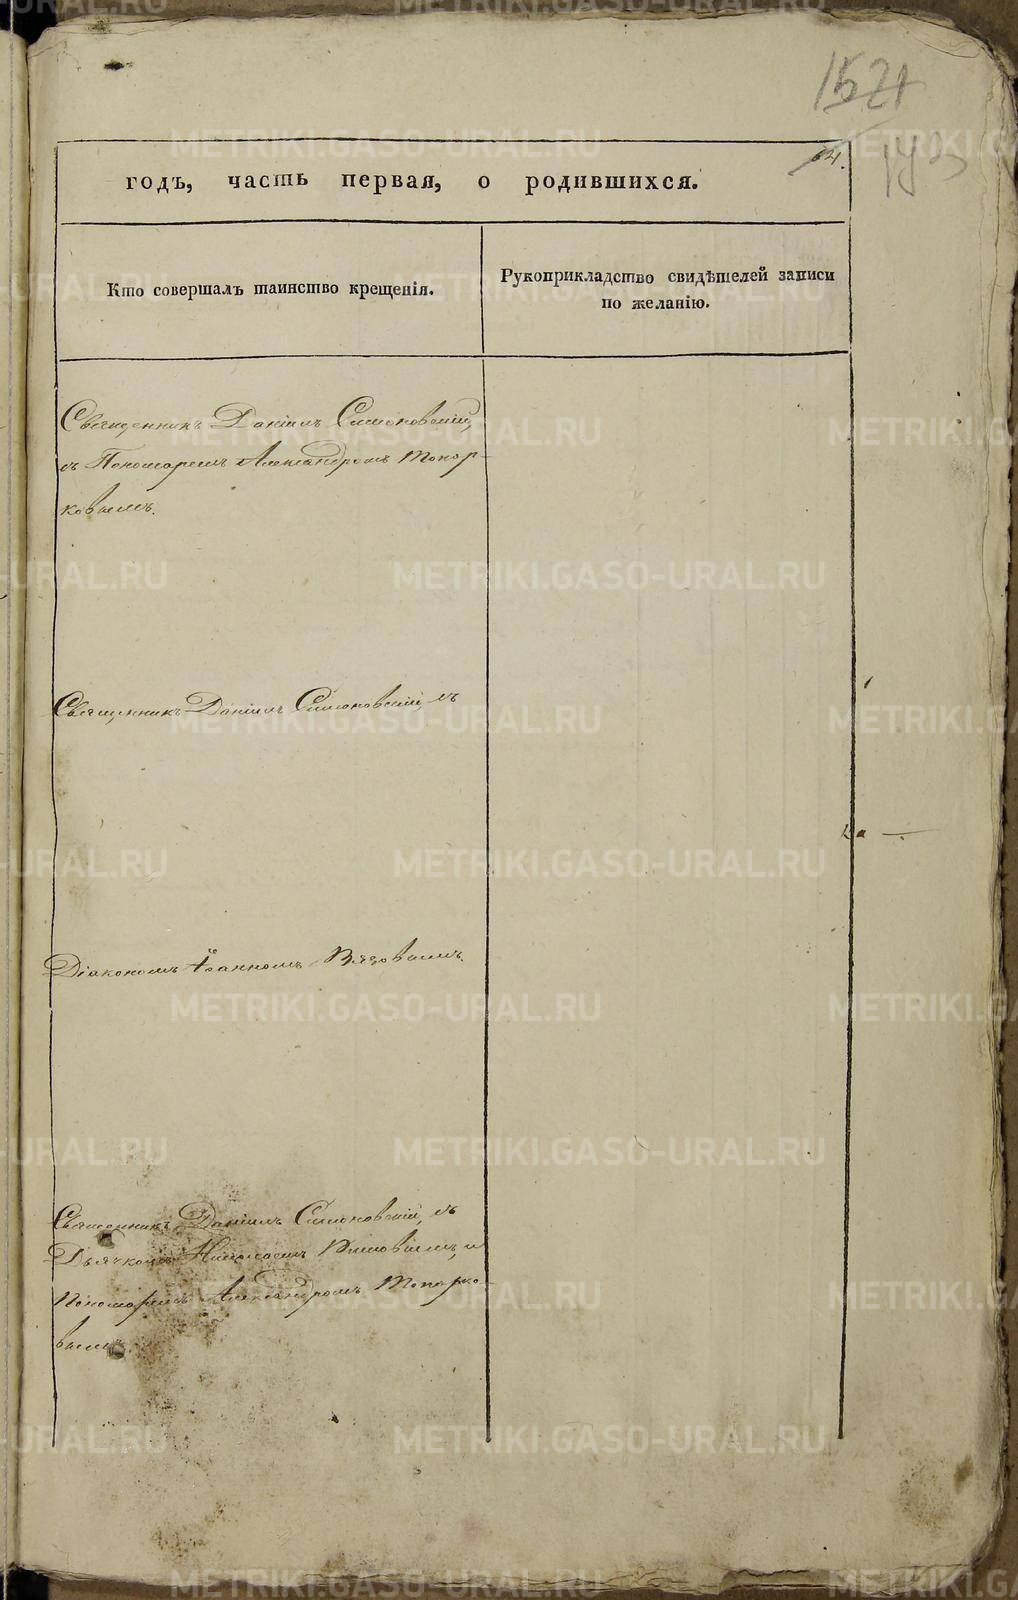 1521
64.
годъ, часть первая, о родившихся.
Кто совершалъ таинство крещенія.
Рукоприкладство свидѣтелей записи
по желанію.
Священникъ Даніилъ Симоновскій,
съ Пономаремъ Александромъ Топор-
ковымъ.
Священникъ Даніилъ Симоновскій, съ
Діакономъ Іоанномъ
Священникъ Даніилъ Симоновскій, съ
Дьячкомъ Николаемъ и
Пономаремъ Александромъ Топорко-
вымъ.
METRIKI.GASO-URAL.RU